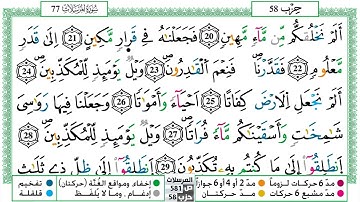 سُورَةُ الْمُرْسَلَاتِ 77
حِزْب 58
أَلَمْ نَخْلُقكُّم مِّن مَّاءٍ مَّهِينٍ 20 فَجَعَلْنَاهُ فِي قَرَارٍ مَّكِينٍ 21 إِلَىٰ قَدَرٍ
مَّعْلُومٍ 22 فَقَدَرْنَا فَنِعْمَ الْقَادِرُونَ 23 وَيْلٌ يَوْمَئِذٍ لِّلْمُكَذِّبِينَ 24
أَلَمْ نَجْعَلِ الْأَرْضَ كِفَاتًا 25 أَحْيَاءً وَأَمْوَاتًا 26 وَجَعَلْنَا فِيهَا رَوَاسِيَ
شَامِخَاتٍ وَأَسْقَيْنَاكُم مَّاءً فُرَاتًا 27 وَيْلٌ يَوْمَئِذٍ لِّلْمُكَذِّبِينَ 28
انطَلِقُوا إِلَىٰ مَا كُنتُم بِهِ تُكَذِّبُونَ 29 انطَلِقُوا إِلَىٰ ظِلٍّ ذِي ثَلَاثِ
مدّ 6 حركات لزوماً مدّ 2 أو 4 أو 6 جوازاً
مدّ مشبع 6 حركات مدّ حركتان
المرسلات
ص 581
حزب 58
إخفاء، ومواقع الغُنَّة (حركتان) تفخيم
إدغام، وما لا يُلفظ قلقلة